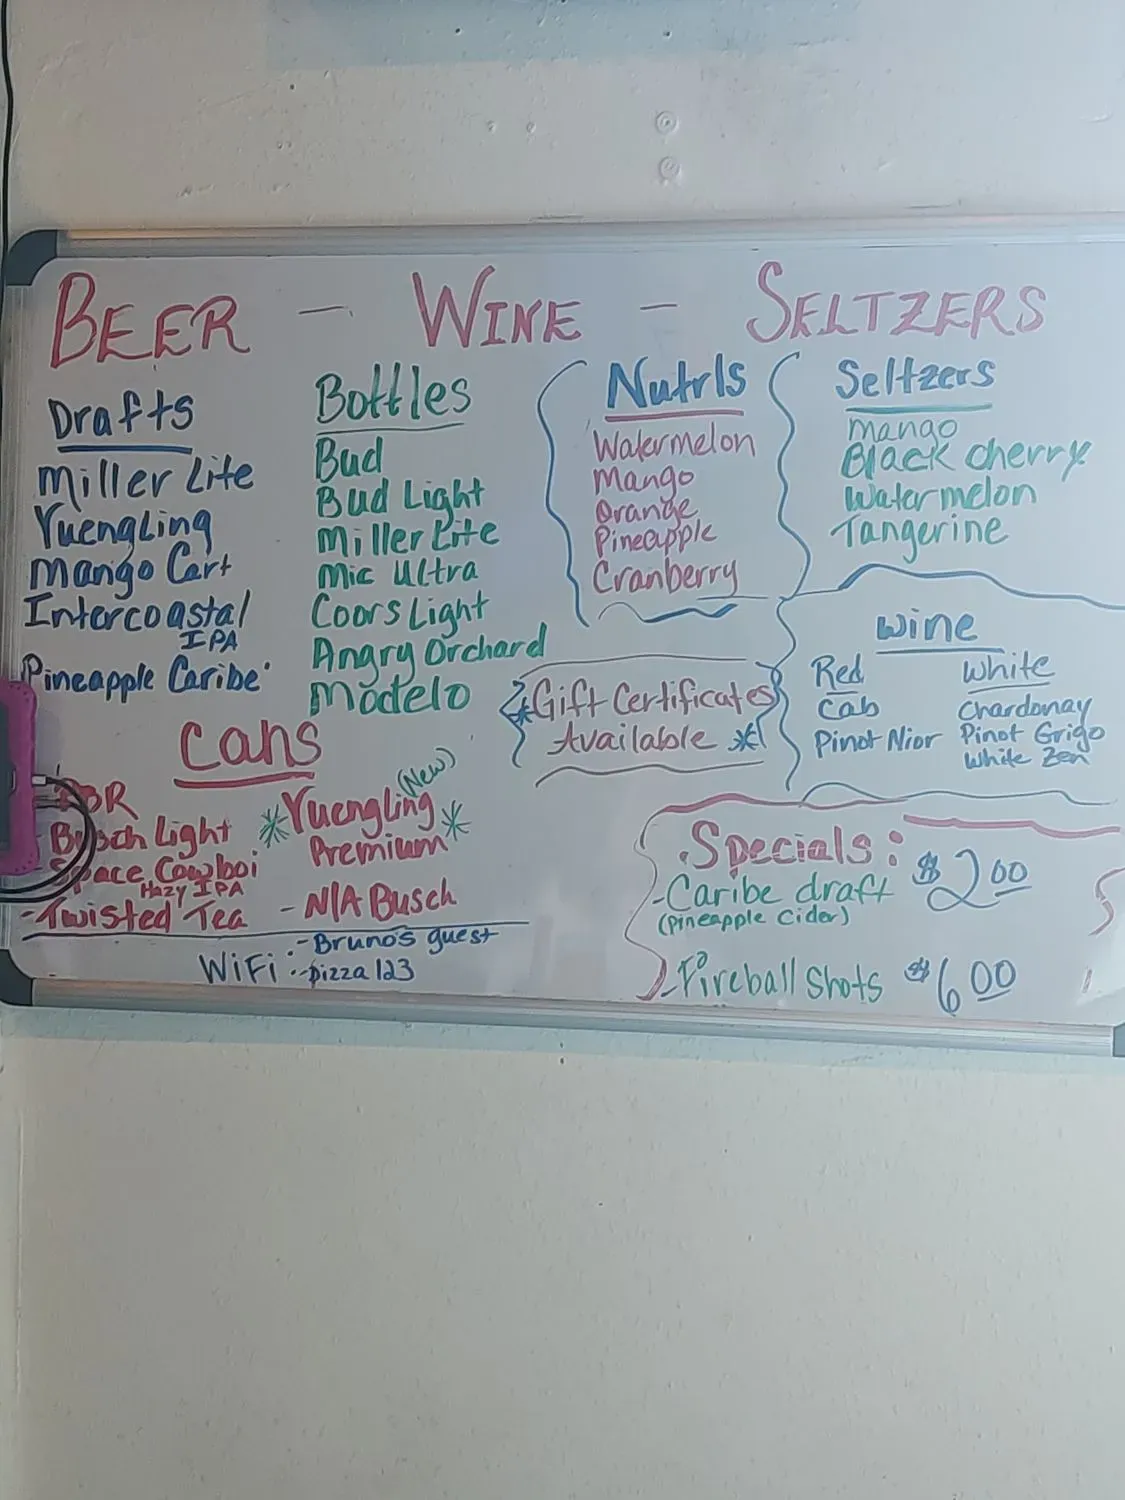 BEER - WINE - SELTZERS
Drafts
Miller Lite
Yuengling
Mango Cart
Intercoastal
IPA
Pineapple Caribe
Bottles
Bud
Bud Light
Miller Lite
Mic Ultra
Coors Light
Angry Orchard
Modelo
Nutrls
Watermelon
Mango
Orange
Pineapple
Cranberry
Seltzers
Mango
Black Cherry
Watermelon
Tangerine
*Gift Certificates
Available *
Wine
Red
Cab
Pinot Nior
White
Chardonay
Pinot Grigo
White Zen
Cans
PBR
- Busch Light
Space Cowboi
Hazy IPA
- Twisted Tea
(New)
*Yuengling*
Premium
- N/A Busch
WiFi: - Bruno's guest
- pizza123
Specials:
- Caribe draft $2.00
(Pineapple Cider)
- Fireball Shots $6.00